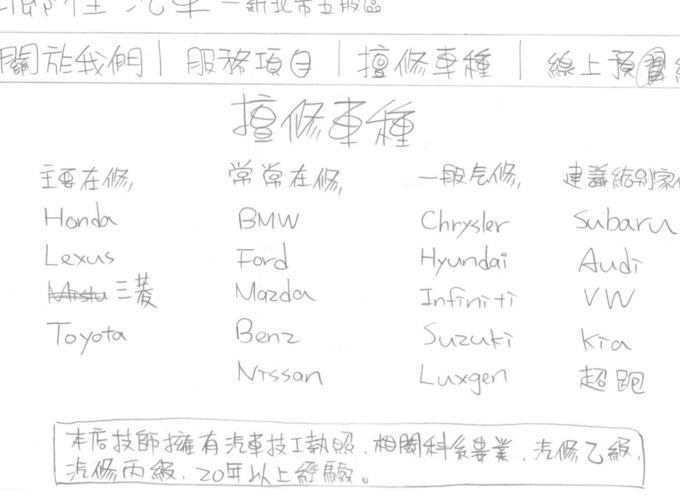 汽車 - 新北市五股區
關於我們 | 服務項目 | 擅修車種 | 線上預
擅修車種
主要在修, 常常在修, 一般在修, 建議給別家
Honda BMW Chrysler Subaru
Lexus Ford Hyundai Audi
三菱 Mazda Infiniti VW
Toyota Benz Suzuki Kia
Nissan Luxgen 超跑
本店技師擁有汽車技工執照、相關科系畢業、汽修乙級、
汽修丙級、20年以上經驗。